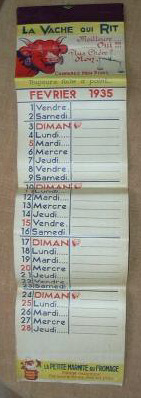 LA VACHE QUI RIT
Meilleure
Oui!!!
Plus Chère?
Non!
Toujours faite à point
FEVRIER 1935
1 Vendre.
2 Samedi
3 DIMAN
4 Lundi
5 Mardi
6 Mercre
7 Jeudi
8 Vendre
9 Samedi
10 DIMAN
11 Lundi
12 Mardi
13 Mercre
14 Jeudi
15 Vendre
16 Samedi
17 DIMAN
18 Lundi
19 Mardi
20 Mercre
21 Jeudi
22 Vendre
23 Samedi
24 DIMAN
25 Lundi
26 Mardi
27 Mercre
28 Jeudi
LA PETITE MARMITE DU FROMAGE